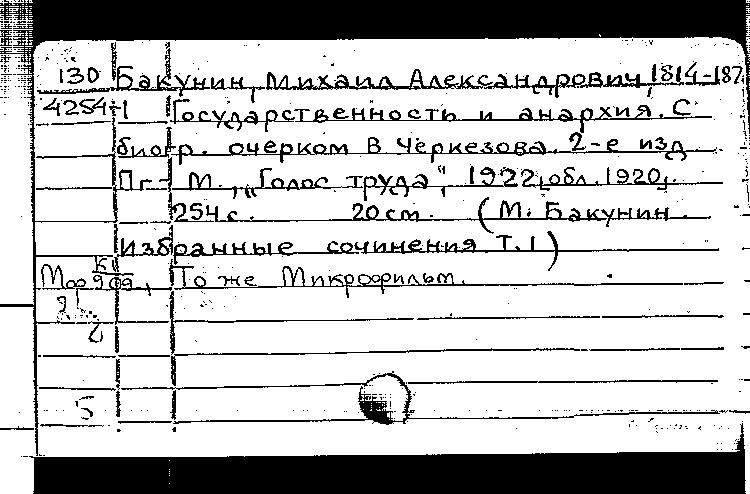 130 Бакунин, Михаил Александрович, 1814-187
4254-1 Государственность и анархия. С
биогр. очерком В Черкезова. 2-е изд
Пг- М., „Голос труда", 1922, обл. 1920,.
254 с. 20 cm. (М. Бакунин.
Избранные сочинения Т. 1)
То же Микрофильм.
5